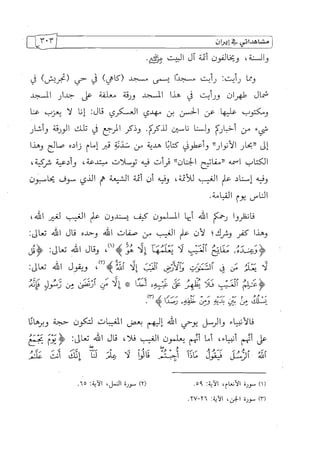 مشاهداتي في إيران
٣٠٣
والسنة، ويخالفون أئمة آل البيت
ومما رأيت: رأيت مسجدًا يسمى مسجد (كاهي) في حي (تجريش) في
شمال طهران ورأيت في هذا المسجد ورقة معلقة على جدار المسجد
ومكتوب عليها عن الحسن بن مهدي العسكري قال: إنا لا يعزب عنا
شيء من أخباركم ولسنا ناسين لذكركم. وذكر المرجع في تلك الورقة وأشار
إلى «بحار الأنوار» وأعطوني كتابًا هدية من سَدَنة قبر إمام زاده صالح وهذا
الكتاب اسمه «مفاتيح الجنان» قرأت فيه توسلات مبتدعة، وأدعية شركية،
وفيه إسناد علم الغيب للأئمة، وفيه أن أئمة الشيعة هم الذي سوف يحاسبون
الناس يوم القيامة.
فانظروا رحمكم الله أيها المسلمون كيف يسندون علم الغيب لغير الله،
وهذا كفر وشرك؛ لأن علم الغيب من صفات الله وحده قال الله تعالى:
﴿وَعِندَهُ مَفَاتِحُ الْغَيْبِ لَا يَعْلَمُهَا إِلَّا هُوَ﴾(١)، وقال الله تعالى: ﴿قُل
لَّا يَعْلَمُ مَن فِي السَّمَاوَاتِ وَالْأَرْضِ الْغَيْبَ إِلَّا اللَّهُ﴾(٢)، ويقول الله تعالى:
﴿عَالِمُ الْغَيْبِ فَلَا يُظْهِرُ عَلَى غَيْبِهِ أَحَدًا * إِلَّا مَنِ ارْتَضَى مِن رَّسُولٍ فَإِنَّهُ
يَسْلُكُ مِن بَيْنِ يَدَيْهِ وَمِنْ خَلْفِهِ رَصَدًا﴾(٣).
فالأنبياء والرسل يوحي الله إليهم بعض المغيبات لتكون حجة وبرهانًا
على أنهم أنبياء، أما أنهم يعلمون الغيب فلا، قال الله تعالى: ﴿يَوْمَ يَجْمَعُ
اللَّهُ الرُّسُلَ فَيَقُولُ مَاذَا أُجِبْتُمْ قَالُوا لَا عِلْمَ لَنَا إِنَّكَ أَنتَ عَلَّامُ
(١) سورة الأنعام، الآية: ٥٩.
(٢) سورة النمل، الآية: ٦٥.
(٣) سورة الجن، الآية: ٢٦-٢٧.